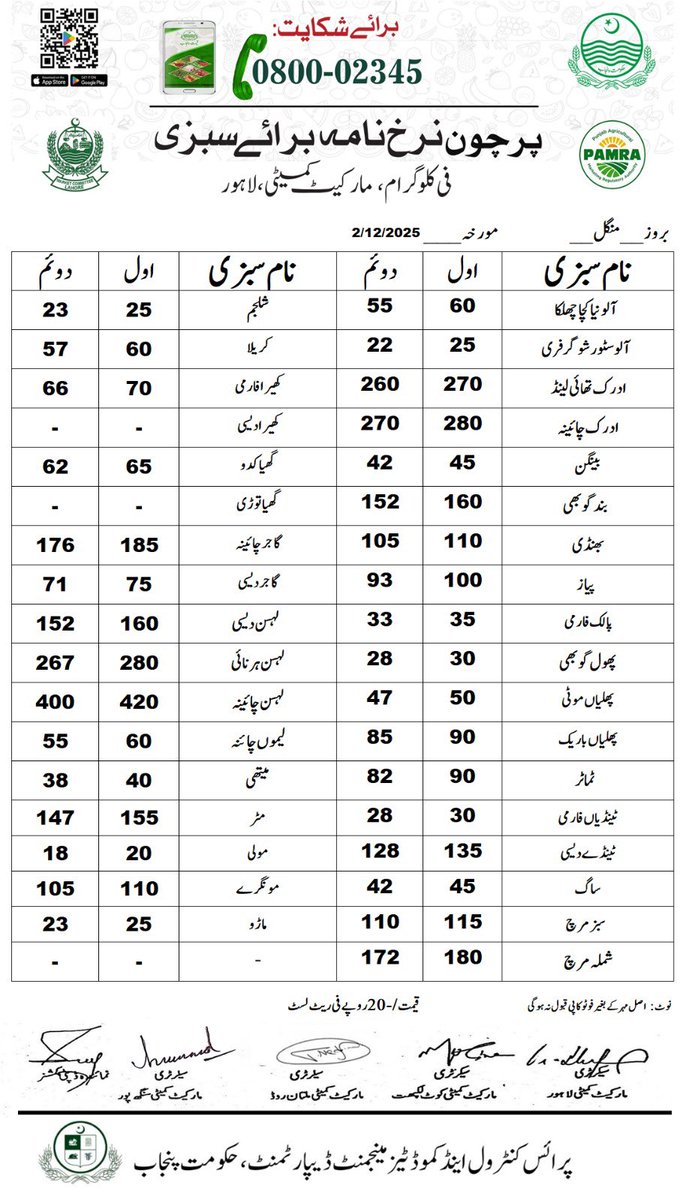 برائے شکایت:
0800-02345
Download on the App Store
GET IT ON Google Play
پرچون نرخ نامہ برائے سبزی
فی کلوگرام، مارکیٹ کمیٹی، لاہور
MARKET COMMITTEE LAHORE
Punjab Agricultural
PAMRA
Marketing Regulatory Authority
بروز منگل مورخہ 2/12/2025
نام سبزی اول دوئم نام سبزی اول دوئم
آلو نیا کچا چھلکا 60 55 شلجم 25 23
آلو سٹور شوگر فری 25 22 کریلا 60 57
ادرک تھائی لینڈ 270 260 کھیرا فارمی 70 66
ادرک چائینہ 280 270 کھیرا دیسی - -
بینگن 45 42 گھیا کدو 65 62
بند گوبھی 160 152 گھیا توڑی - -
بھنڈی 110 105 گاجر چائینہ 185 176
پیاز 100 93 گاجر دیسی 75 71
پالک فارمی 35 33 لہسن دیسی 160 152
پھول گوبھی 30 28 لہسن ہرنائی 280 267
پھلیاں موٹی 50 47 لہسن چائینہ 420 400
پھلیاں باریک 90 85 لیموں چائنہ 60 55
ٹماٹر 90 82 میتھی 40 38
ٹینڈیاں فارمی 30 28 مٹر 155 147
ٹینڈے دیسی 135 128 مولی 20 18
ساگ 45 42 مونگرے 110 105
سبز مرچ 115 110 ماڑو 25 23
شملہ مرچ 180 172 - - -
نوٹ: اصل مہر کے بغیر فوٹو کاپی قبول نہ ہوگی قیمت/-20 روپے فی ریٹ لسٹ
سیکرٹری سیکرٹری سیکرٹری سیکرٹری
مارکیٹ کمیٹی لاہور مارکیٹ کمیٹی کوٹ لکھپت مارکیٹ کمیٹی ملتان روڈ مارکیٹ کمیٹی سنگھ پور
پرائس کنٹرول اینڈ کموڈٹیز مینجمنٹ ڈیپارٹمنٹ، حکومت پنجاب